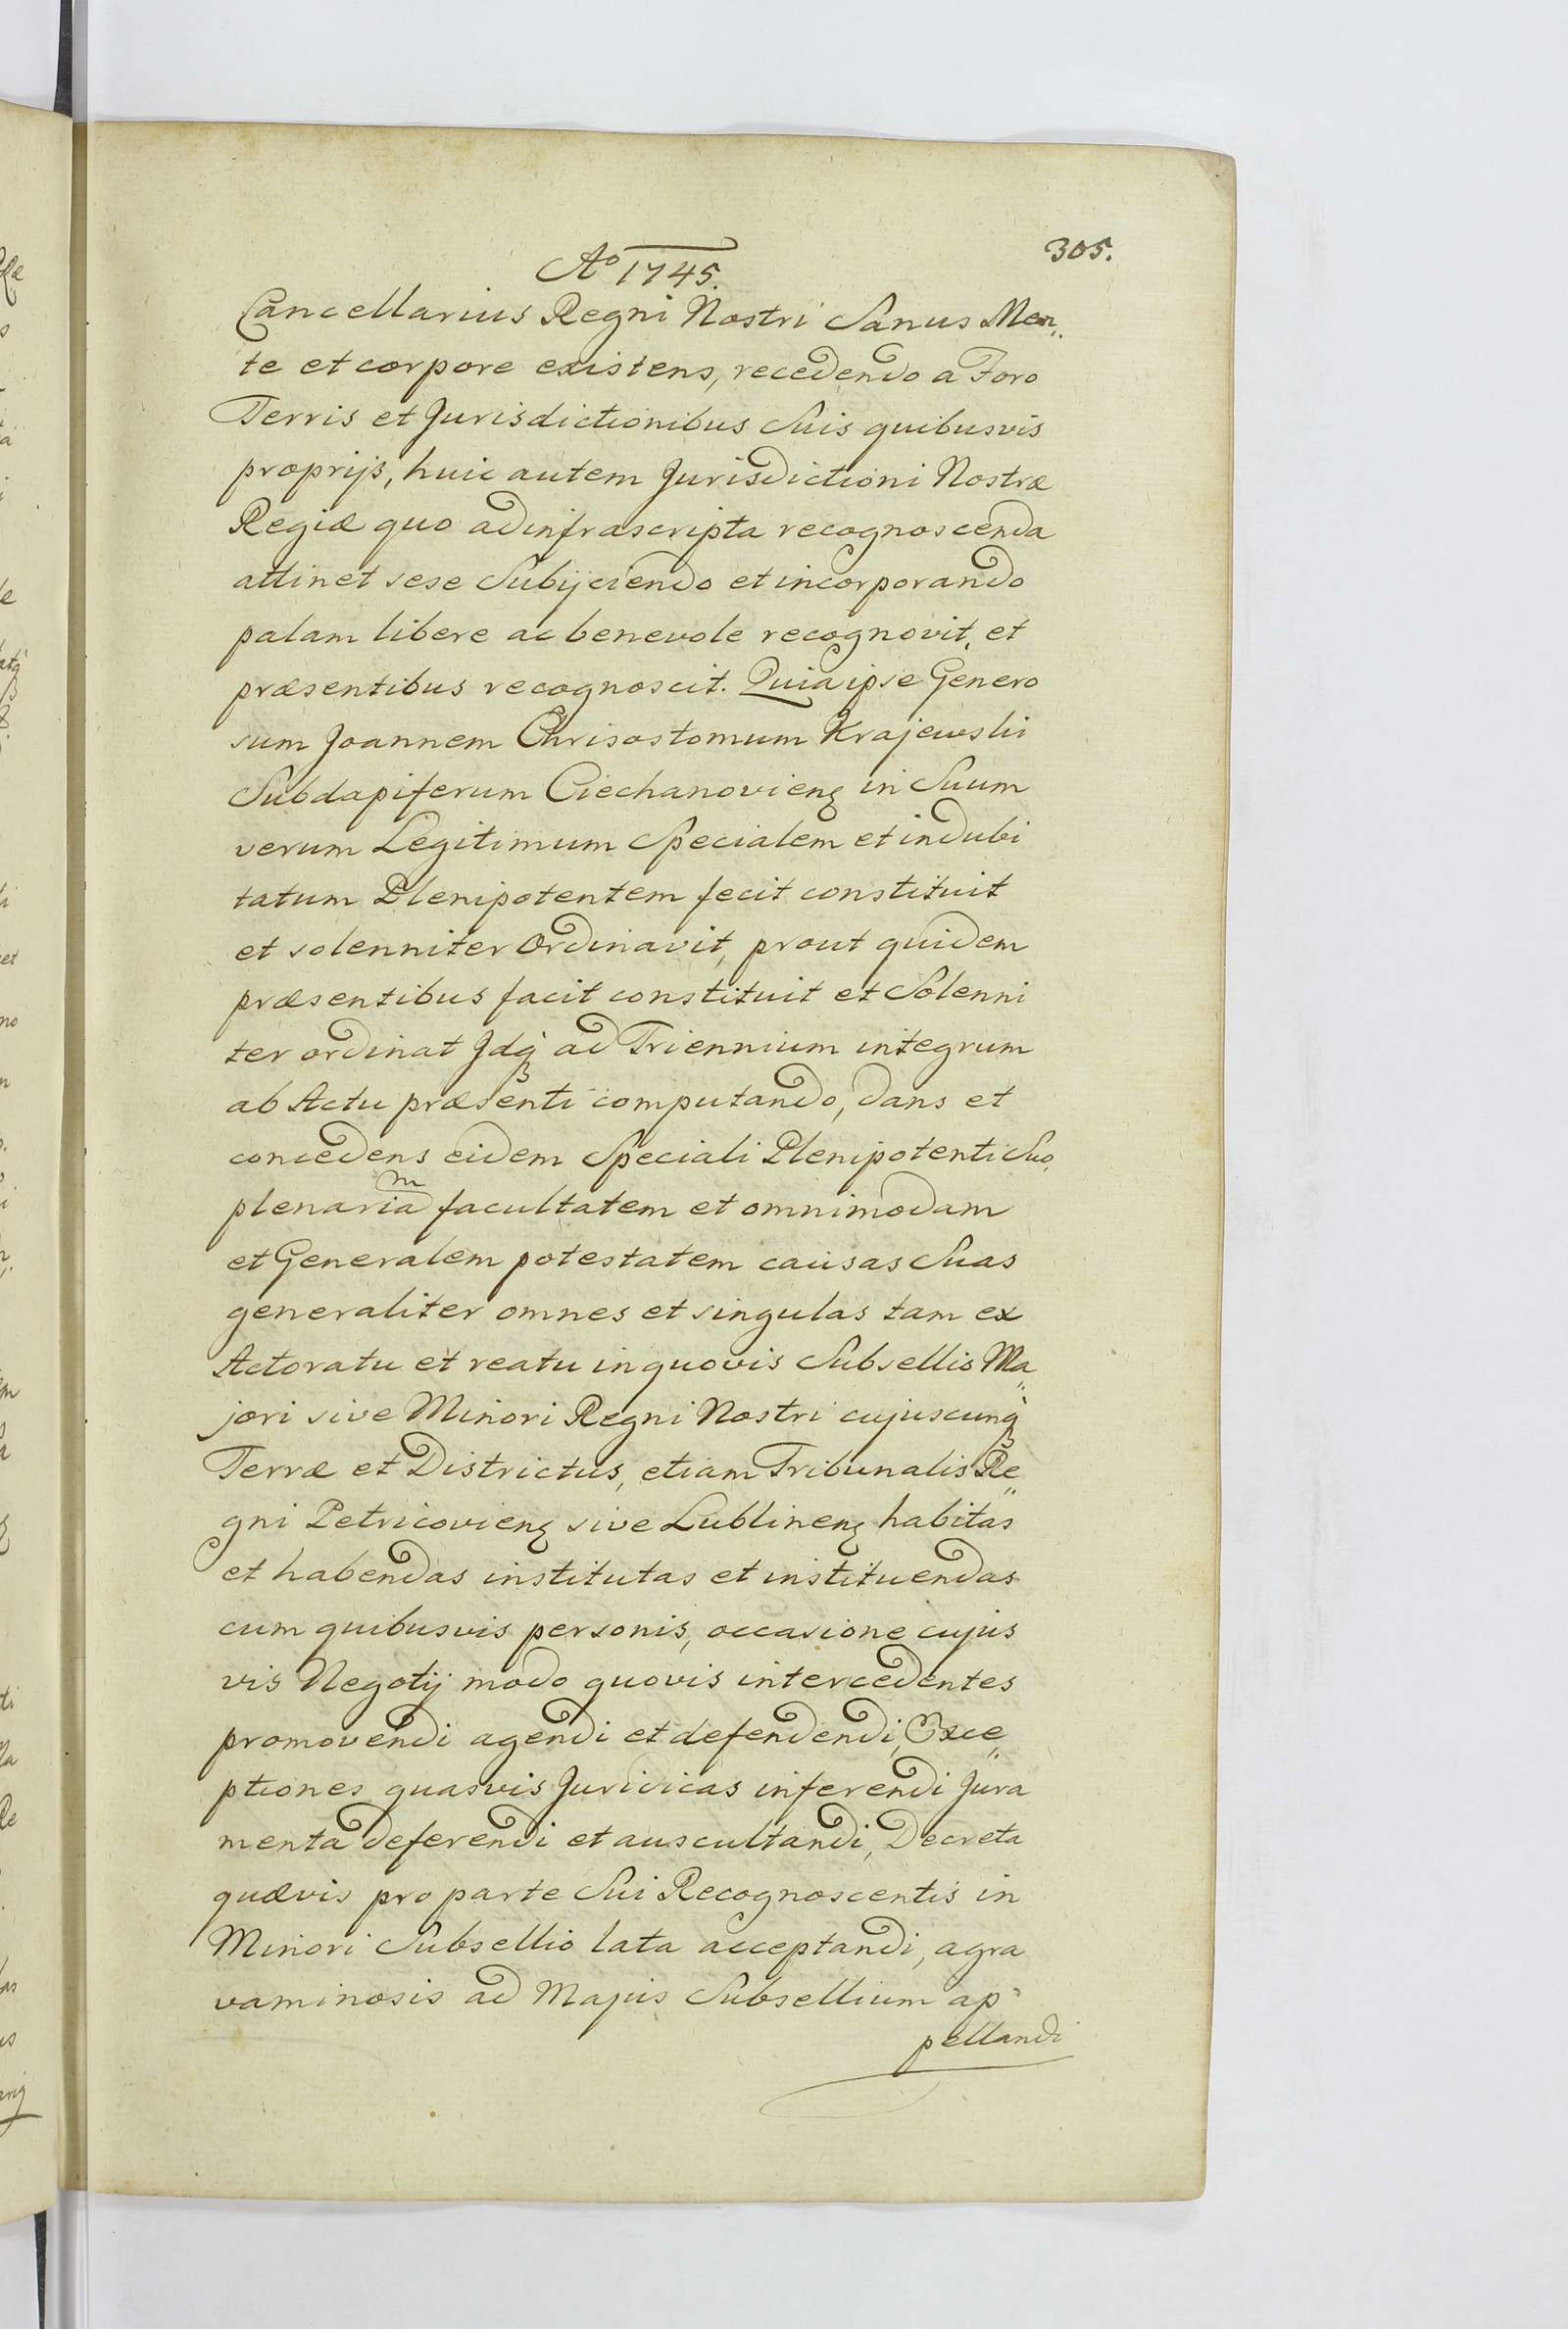 305.
Aº 1745.
Cancellarius Regni Nostri Sanus Men„
te et corpore existens, recedendo a Foro
Terris et Jurisdictionibus Suis quibusvis
proprijs, huic autem Jurisdictioni Nostræ
Regiæ quo ad infrascripta recognoscenda
attinet sese Subijciendo et incorporando
palam libere ac benevole recognovit, et
præsentibus recognoscit. Quia ipse Genero
sum Joannem Chrisostomum Krajewski
Subdapiferum Ciechanovienȝ in Suum
verum Legitimum Specialem et indubi
tatum Plenipotentem fecit constituit
et solenniter Ordinavit, prout quidem
præsentibus facit constituit et Solenni
ter ordinat Jdqȝ ad Triennium integrum
ab Actu præsenti computando, dans et
concedens eidem Speciali Plenipotenti Suo
plenariam facultatem et omnimodam
et Generalem potestatem causas Suas
generaliter omnes et singulas tam ex
Actoratu et reatu in quovis Subsellis Ma„
jori sive Minori Regni Nostri cujuscunqȝ
Terræ et Districtus, etiam Tribunalis Re„
gni Petricovienȝ sive Lublinenȝ habitas
et habendas institutas et instituendas
cum quibusvis personis, occasione cujus
vis Negotij modo quovis intercedentes
promovendi agendi et defendendi, Exce„
ptiones quasvis Juridicas inferendi Jura
menta deferendi et auscultandi, Decreta
quævis pro parte Sui Recognoscentis in
Minori Subsellio lata acceptandi, agra
vaminosis ad Majus Subsellium ap
pellandi